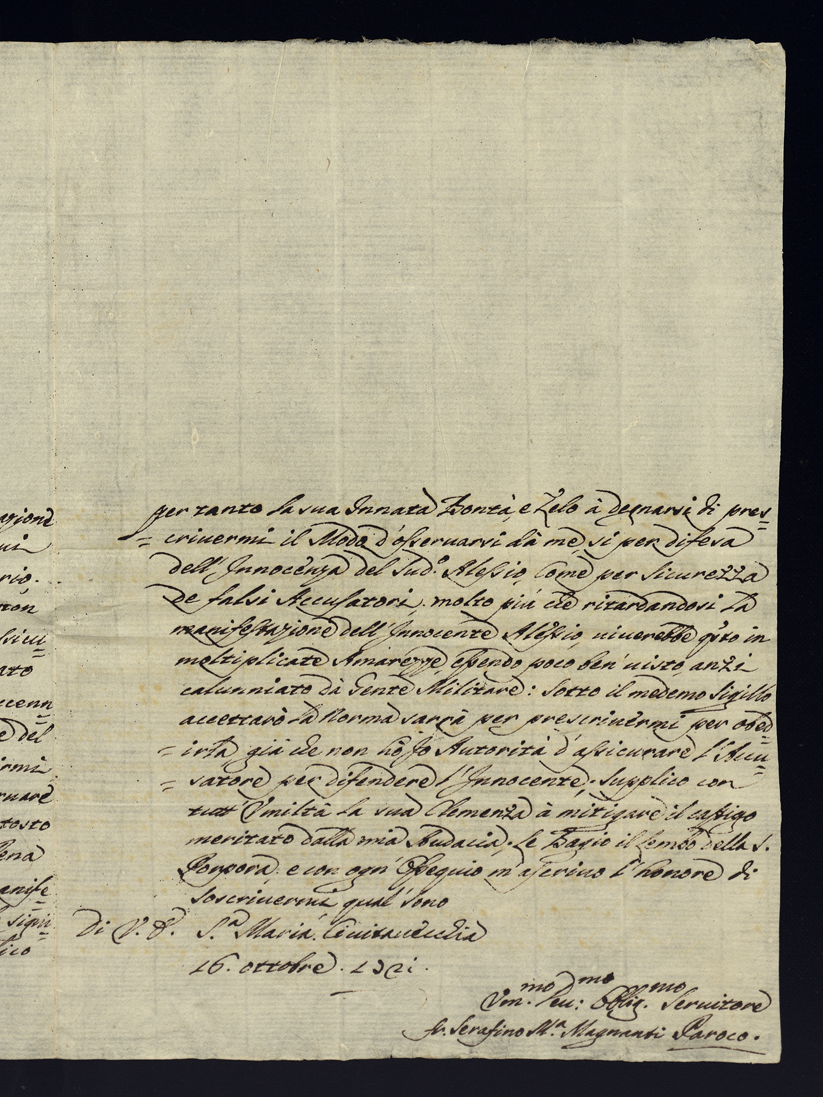 agione
ui
rio.
ton
sicu=
ato
ccenn=
e del
irmi
ruare
tosto
Pena
anife=
signi=
lico
per tanto la sua Innata Bontà, e Zelo à degnarsi di pres=
=criuermi il Modo d'osseruarsi dà me, si per difesa
dell'Innocenza del Sud.º Alessio, Come per Sicurezza
De falsi Accusatori, molto più che ritardandosi la
manifestazione dell'Innocente Alessio, uiuerebbe qsto in
moltiplicate Amarezze essendo poco ben' uisto, anzi
calunniato dà Gente Militare: Sotto il medemo Sigillo
accettarò la Norma sarrà per prescriuermi per obed=
=irla già che non hò Io Autorità d'assicurare l'Accu=
=satore per difendere l'Innocente; supplico con
tutt' Vmiltà la sua Clemenza à mitigare il castigo
meritato dalla mia Audacia, le bagio il lembo della S.
Porpora, e con ogn' Ossequio m'ascriuo l'honore di
soscriuermi qual sono
Di V. S.ª Maria Ciuitauecchia
16. ottobre.
Vm.mo Deu:mo Obblig.mo Seruitore
fr. Serafino M.ª Magnanti Paroco.